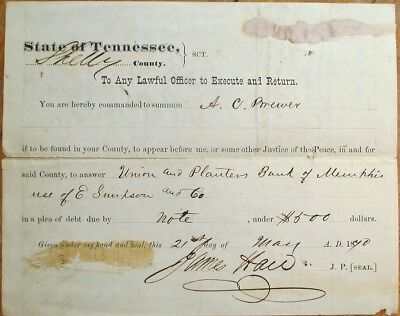 State of Tennessee, } SCT.
Shelby County.
To Any Lawful Officer to Execute and Return.
You are hereby commanded to summon A. C. Brewer
if to be found in your County, to appear before me, or some other Justice of the Peace, in and for
said County, to answer Union and Planters Bank of Memphis
use of E Simpson and Co.
in a plea of debt due by note , under $500 dollars.
Given under my hand and seal, this 21st day of May A. D. 18
James Hall J. P. [SEAL.]